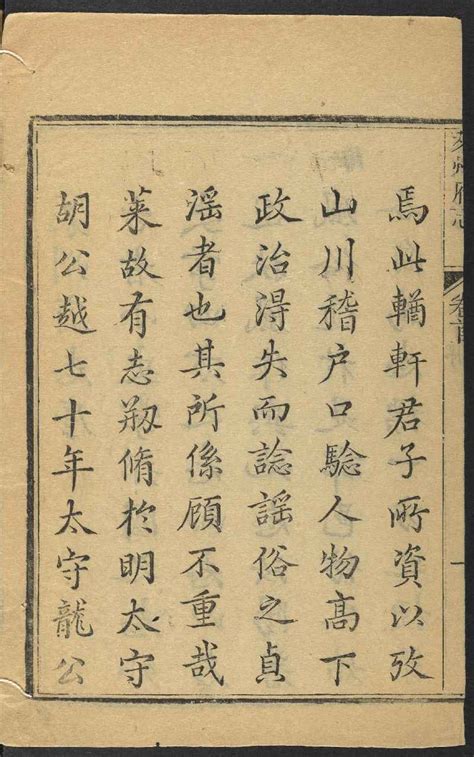 萊州府志 卷首 一
焉此輶軒君子所資以攷
山川稽户口騐人物髙下
政治得失而諗謡俗之貞
淫者也其所係顧不重哉
萊故有志剏脩於明太守
胡公越七十年太守龍公